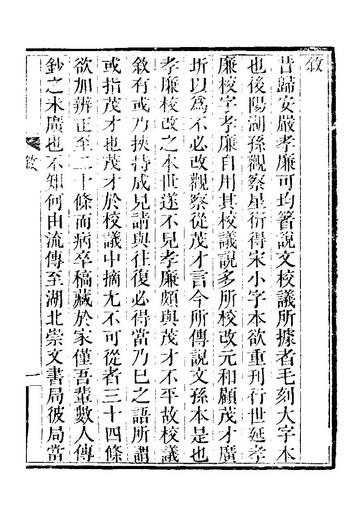 敘
昔歸安嚴孝廉可均箸說文校議所據者毛刻大字本
也後陽湖孫觀察星衍得宋小字本欲重刊行世延孝
廉校字孝廉自用其校議說多所校改元和顧茂才廣
圻以為不必改觀察從茂才言今所傳說文孫本是也
孝廉校改之本世遂不見孝廉頗與茂才不平故校議
敘有或乃挾持成見請與往復必得當乃巳之語所謂
或指茂才也茂才於校議中摘尤不可從者三十四條
欲加辨正至二十條而病卒稿藏於家僅吾輩數人傳
鈔之未廣也不知何由流傳至湖北崇文書局彼局當
敘
一